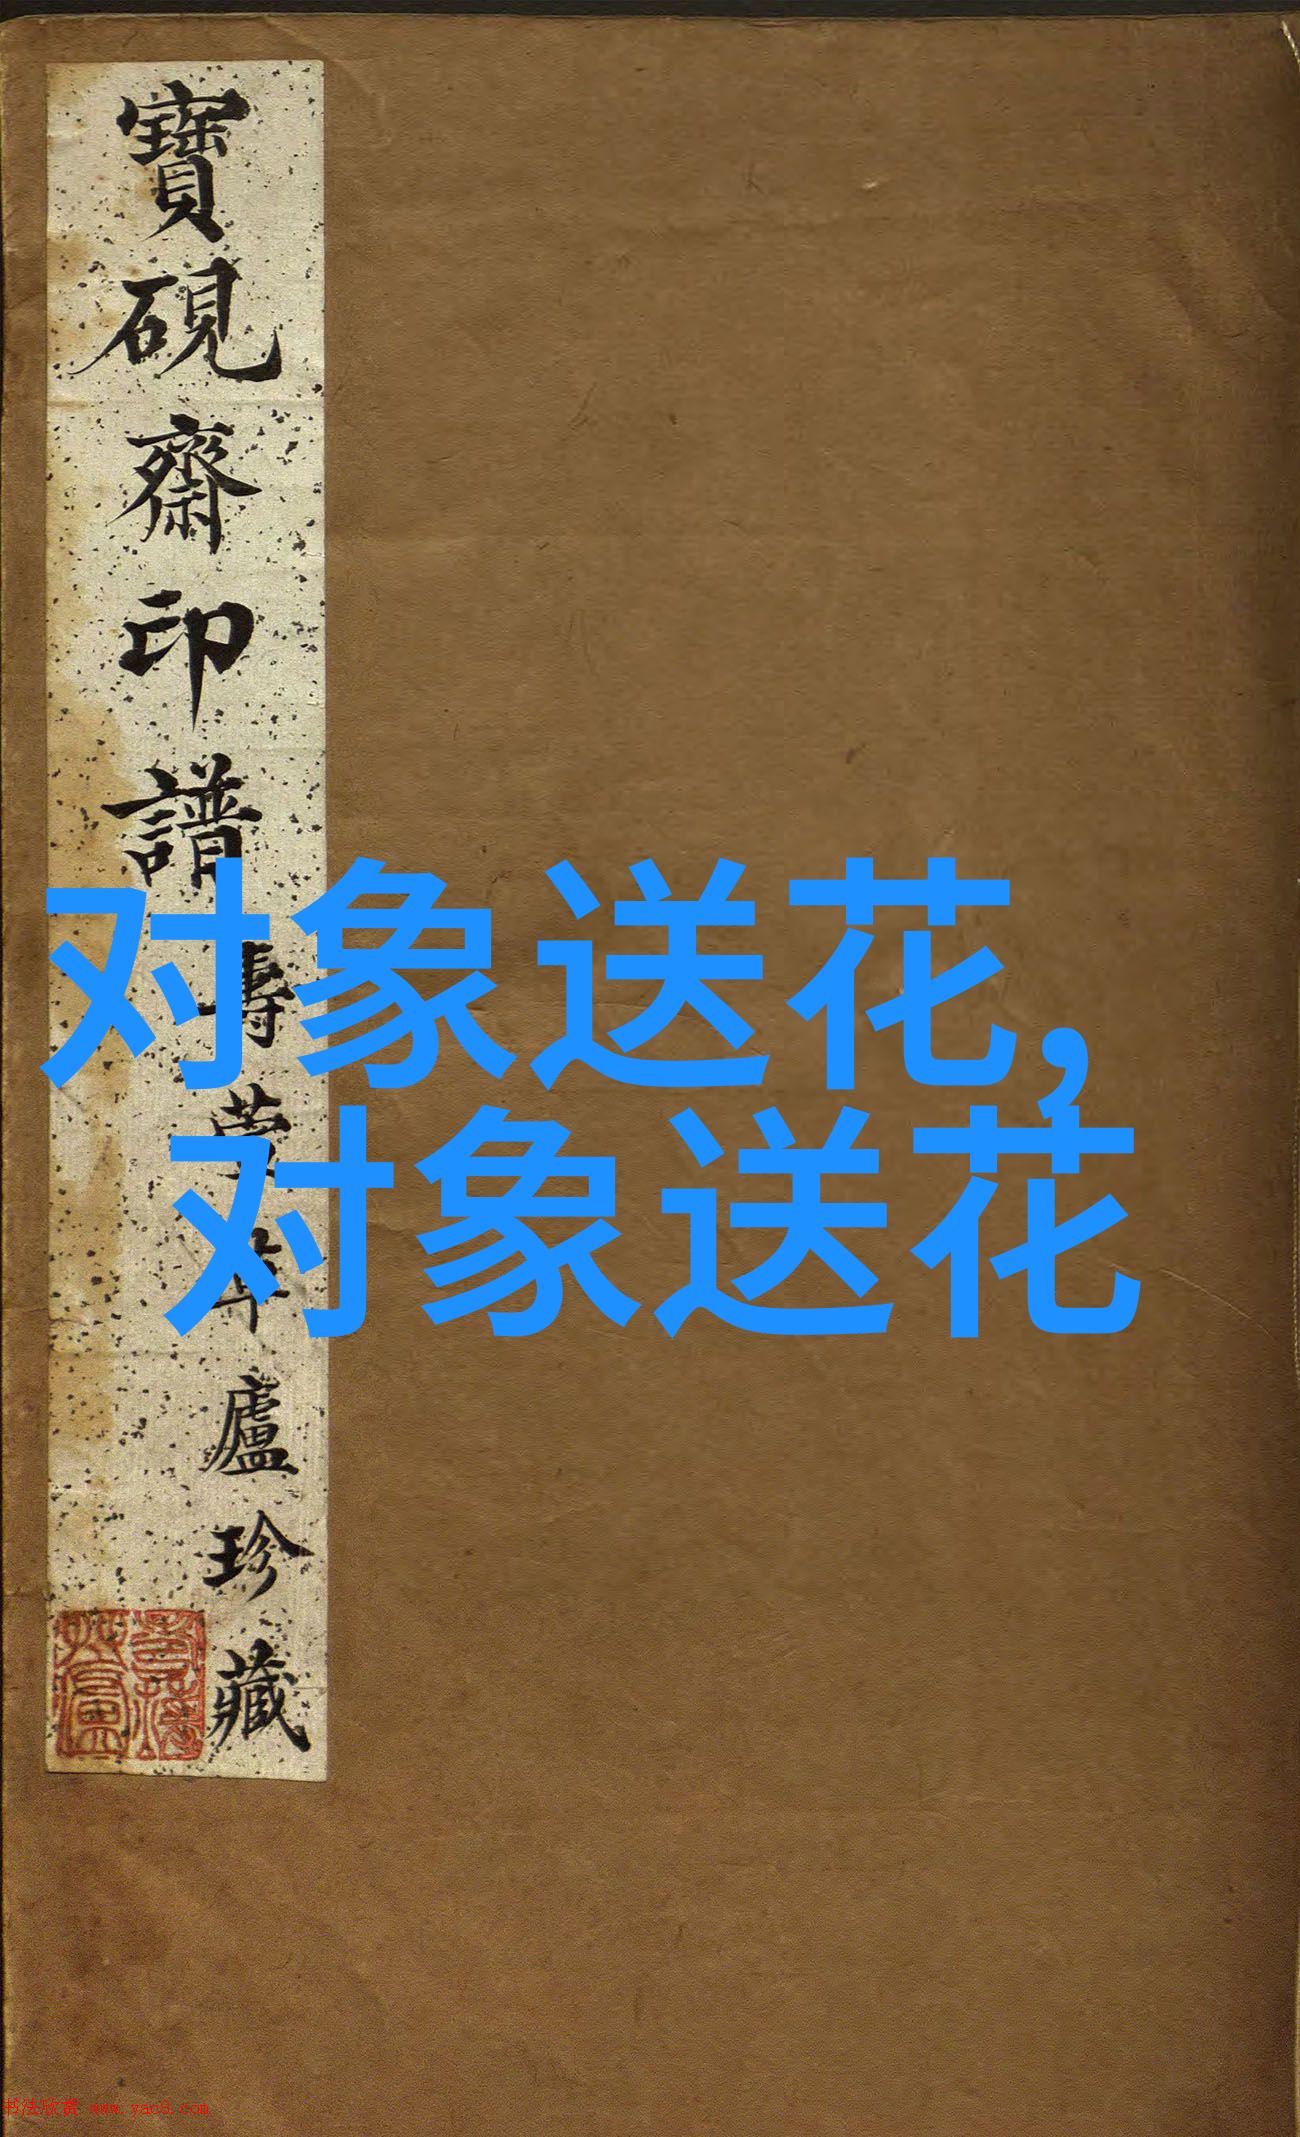 寶硯齋印譜
壽
廬珍藏
对象送花，
对象送花
书法欣赏 www.yac8.com